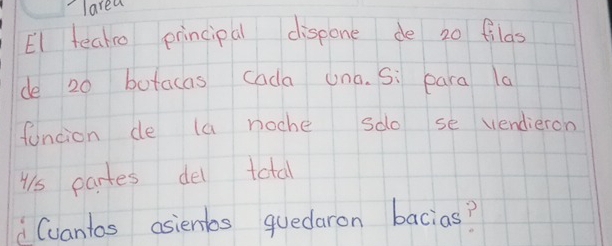 Tarea
El teatro principal dispone de 20 filas
de 20 butacas cada una. Si para la
funcion de la noche solo se vendieron
4/5 partes del total
¿Cuantos asientos quedaron bacias?